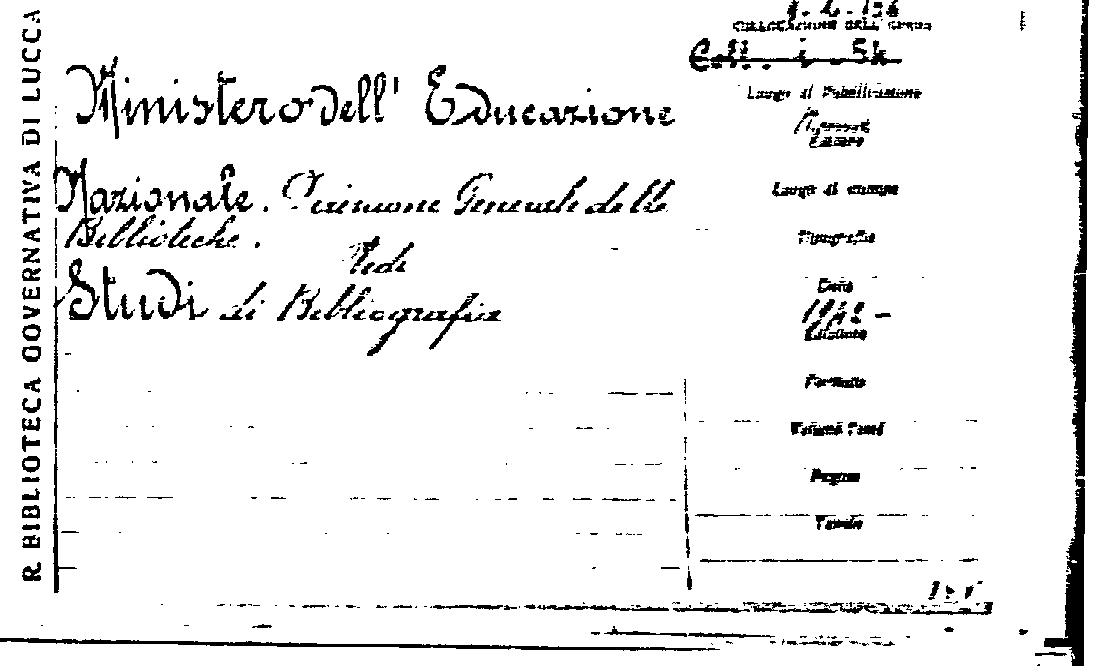 R. BIBLIOTECA GOVERNATIVA DI LUCCA
COLLOCAZIONE DELL' OPERA
Coll. i. 54
Ministero dell' Educazione
Nazionale. Direzione Generale delle
Biblioteche.
Vedi
Studi di Bibliografia
Luogo di Pubblicazione
Editore
Luogo di stampa
Tipografia
Data
1942 -
Edizione
Formato
Volumi
Pagine
Tavole